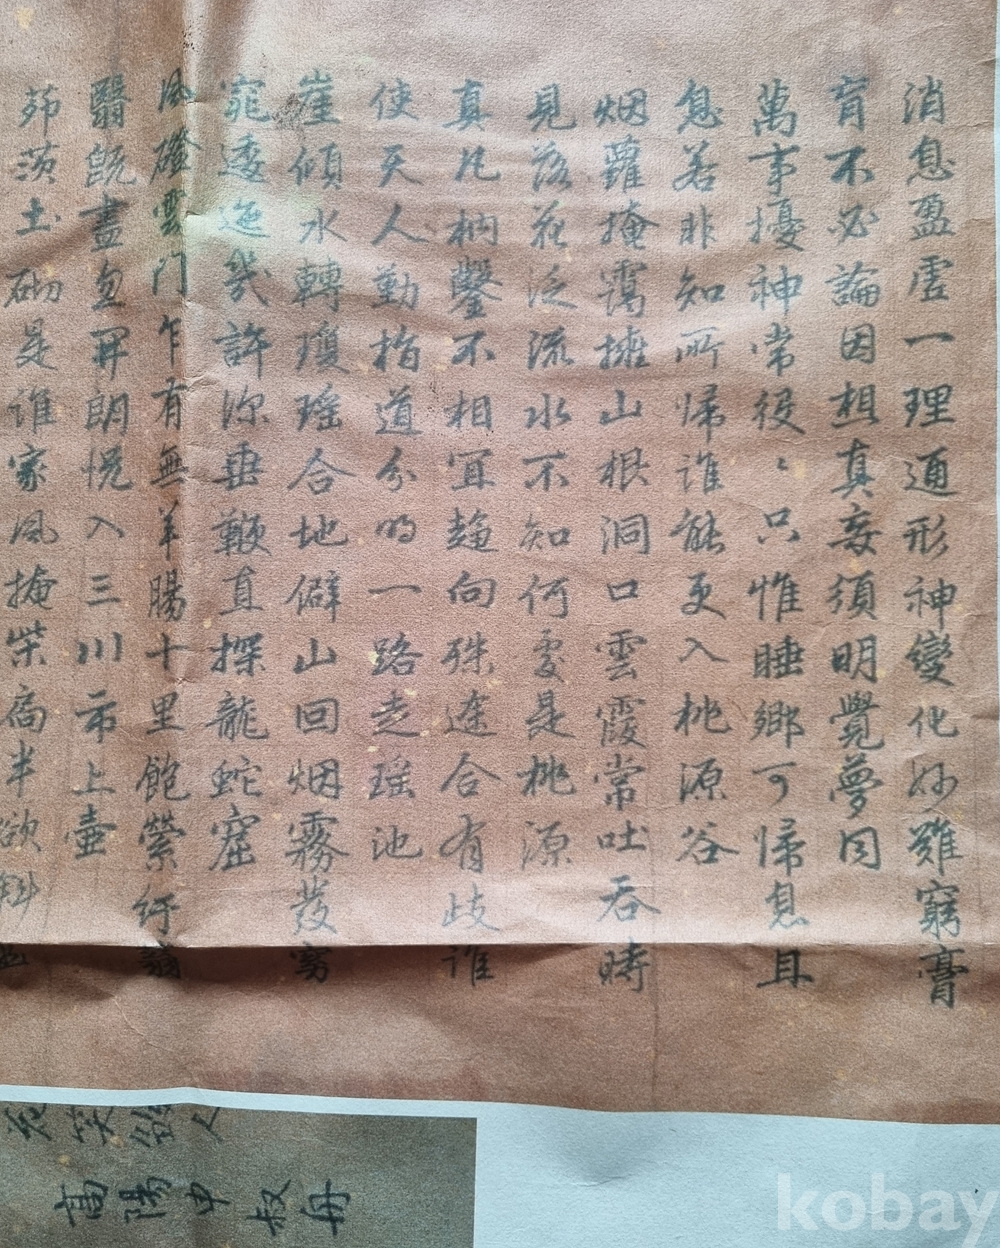 消息盈虛一理通形神變化妙難窮膏
肓不必論因想真妄須明覺夢同
萬事擾神常役〻只惟睡鄉可歸息且
息若非知所歸誰能更入桃源谷
烟蘿掩靄擁山根洞口雲霞常吐呑時
見落花泛流水不知何處是桃源
真凡枘鑿不相宜趍向殊途合有歧誰
使天人勤指道分明一路走瑶池
崖傾水轉瓊瑶合地僻山回烟霧發窮
窕逶迤幾許深垂鞭直探龍蛇窟
風磴雲門乍有無羊腸十里飽縈紆
翳旣盡忽開朗怳入三川市上壷
茆茨土砌是誰家風掩柴扃半欲斜
高陽申叔舟
kobay